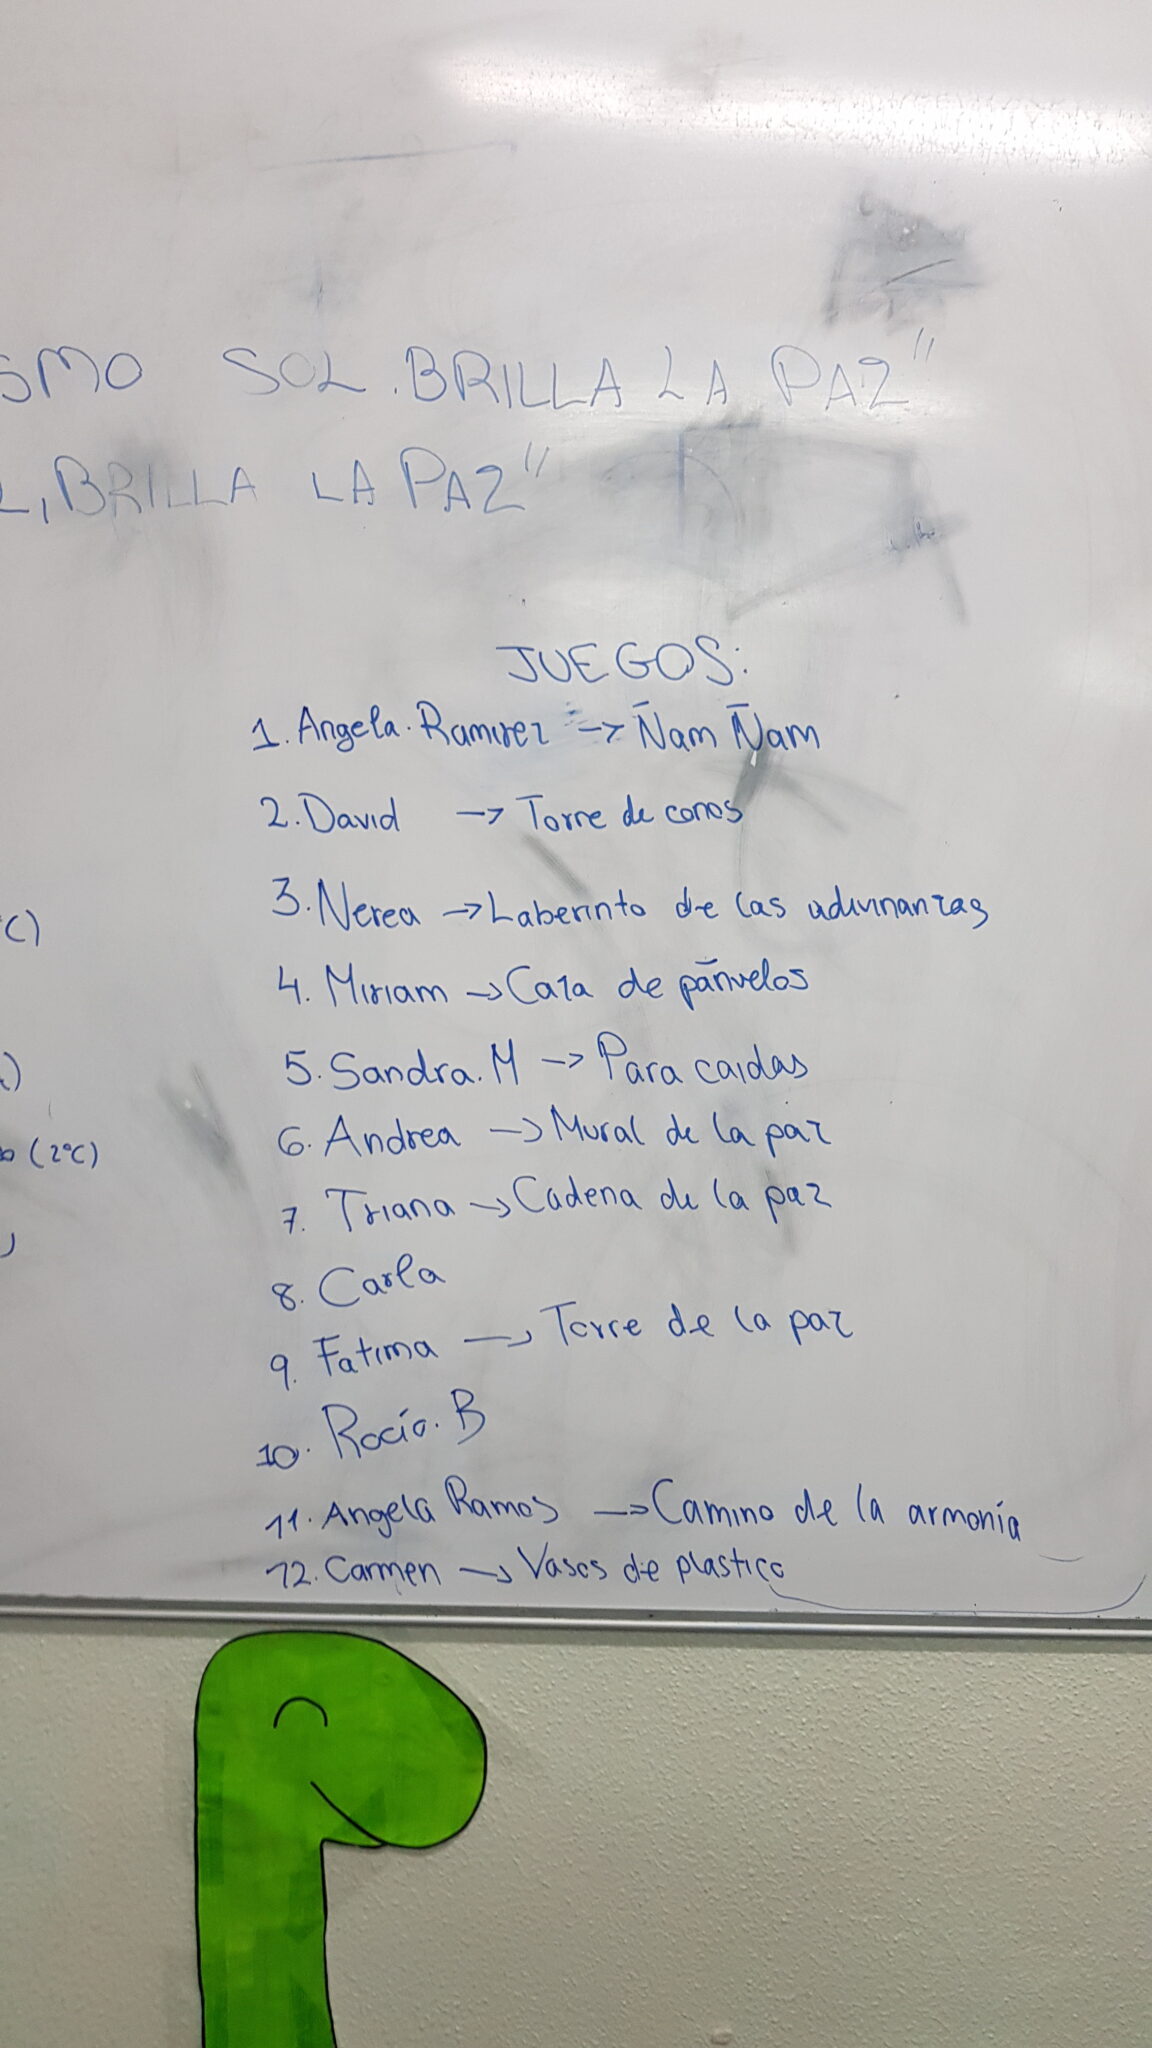 SMO SOL. BRILLA LA PAZ"
L, BRILLA LA PAZ"
JUEGOS:
1. Angela. Ramirez -> Ñam Ñam
2. David -> Torre de conos
3. Nerea -> Laberinto de las adivinanzas
C)
4. Miriam -> Caza de pañuelos
5. Sandra. M -> Para caidas
)
6. Andrea -> Mural de la paz
(2ºC)
7. Triana -> Cadena de la paz
)
8. Carla
9. Fatima -> Torre de la paz
10. Rocío. B
11. Angela Ramos -> Camino de la armonía
12. Carmen -> Vasos de plastico